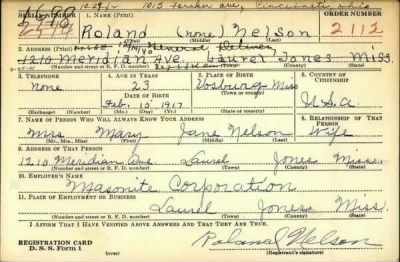 1015 Farther ave, Cincinnati, Ohio
SERIAL NUMBER 1. NAME (Print) ORDER NUMBER
Roland (none) Nelson 2112
(First) (Middle) (Last)
2. ADDRESS (Print) General Delivery
1210 Meridian Ave. Laurel Jones Miss.
(Number and street or R. F. D. number) (Town) (County) (State)
3. TELEPHONE 4. AGE IN YEARS 5. PLACE OF BIRTH 6. COUNTRY OF CITIZENSHIP
none 23 Vosburg
DATE OF BIRTH Miss U.S.A
Feb. 10 1917
(Exchange) (Number) (Mo.) (Day) (Yr.) (State or country)
7. NAME OF PERSON WHO WILL ALWAYS KNOW YOUR ADDRESS 8. RELATIONSHIP OF THAT PERSON
Mrs Mary Jane Nelson Wife
(Mr., Mrs., Miss) (First) (Middle) (Last)
9. ADDRESS OF THAT PERSON
1210 Meridian Ave Laurel Jones Miss.
(Number and street or R. F. D. number) (Town) (County) (State)
10. EMPLOYER'S NAME
Masonite Corporation
11. PLACE OF EMPLOYMENT OR BUSINESS
Laurel Jones Miss.
(Number and street or R. F. D. number) (Town) (County) (State)
I AFFIRM THAT I HAVE VERIFIED ABOVE ANSWERS AND THAT THEY ARE TRUE.
REGISTRATION CARD
D. S. S. Form 1 Roland Nelson
(Registrant's signature)